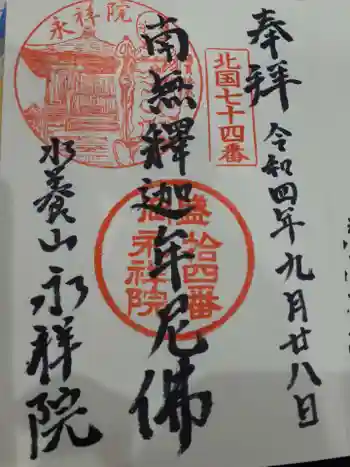 奉拝
令和四年九月廿八日
北国七十四番
南無釋迦牟尼佛
永祥院
盛拾四番
永祥院
水養山永祥院